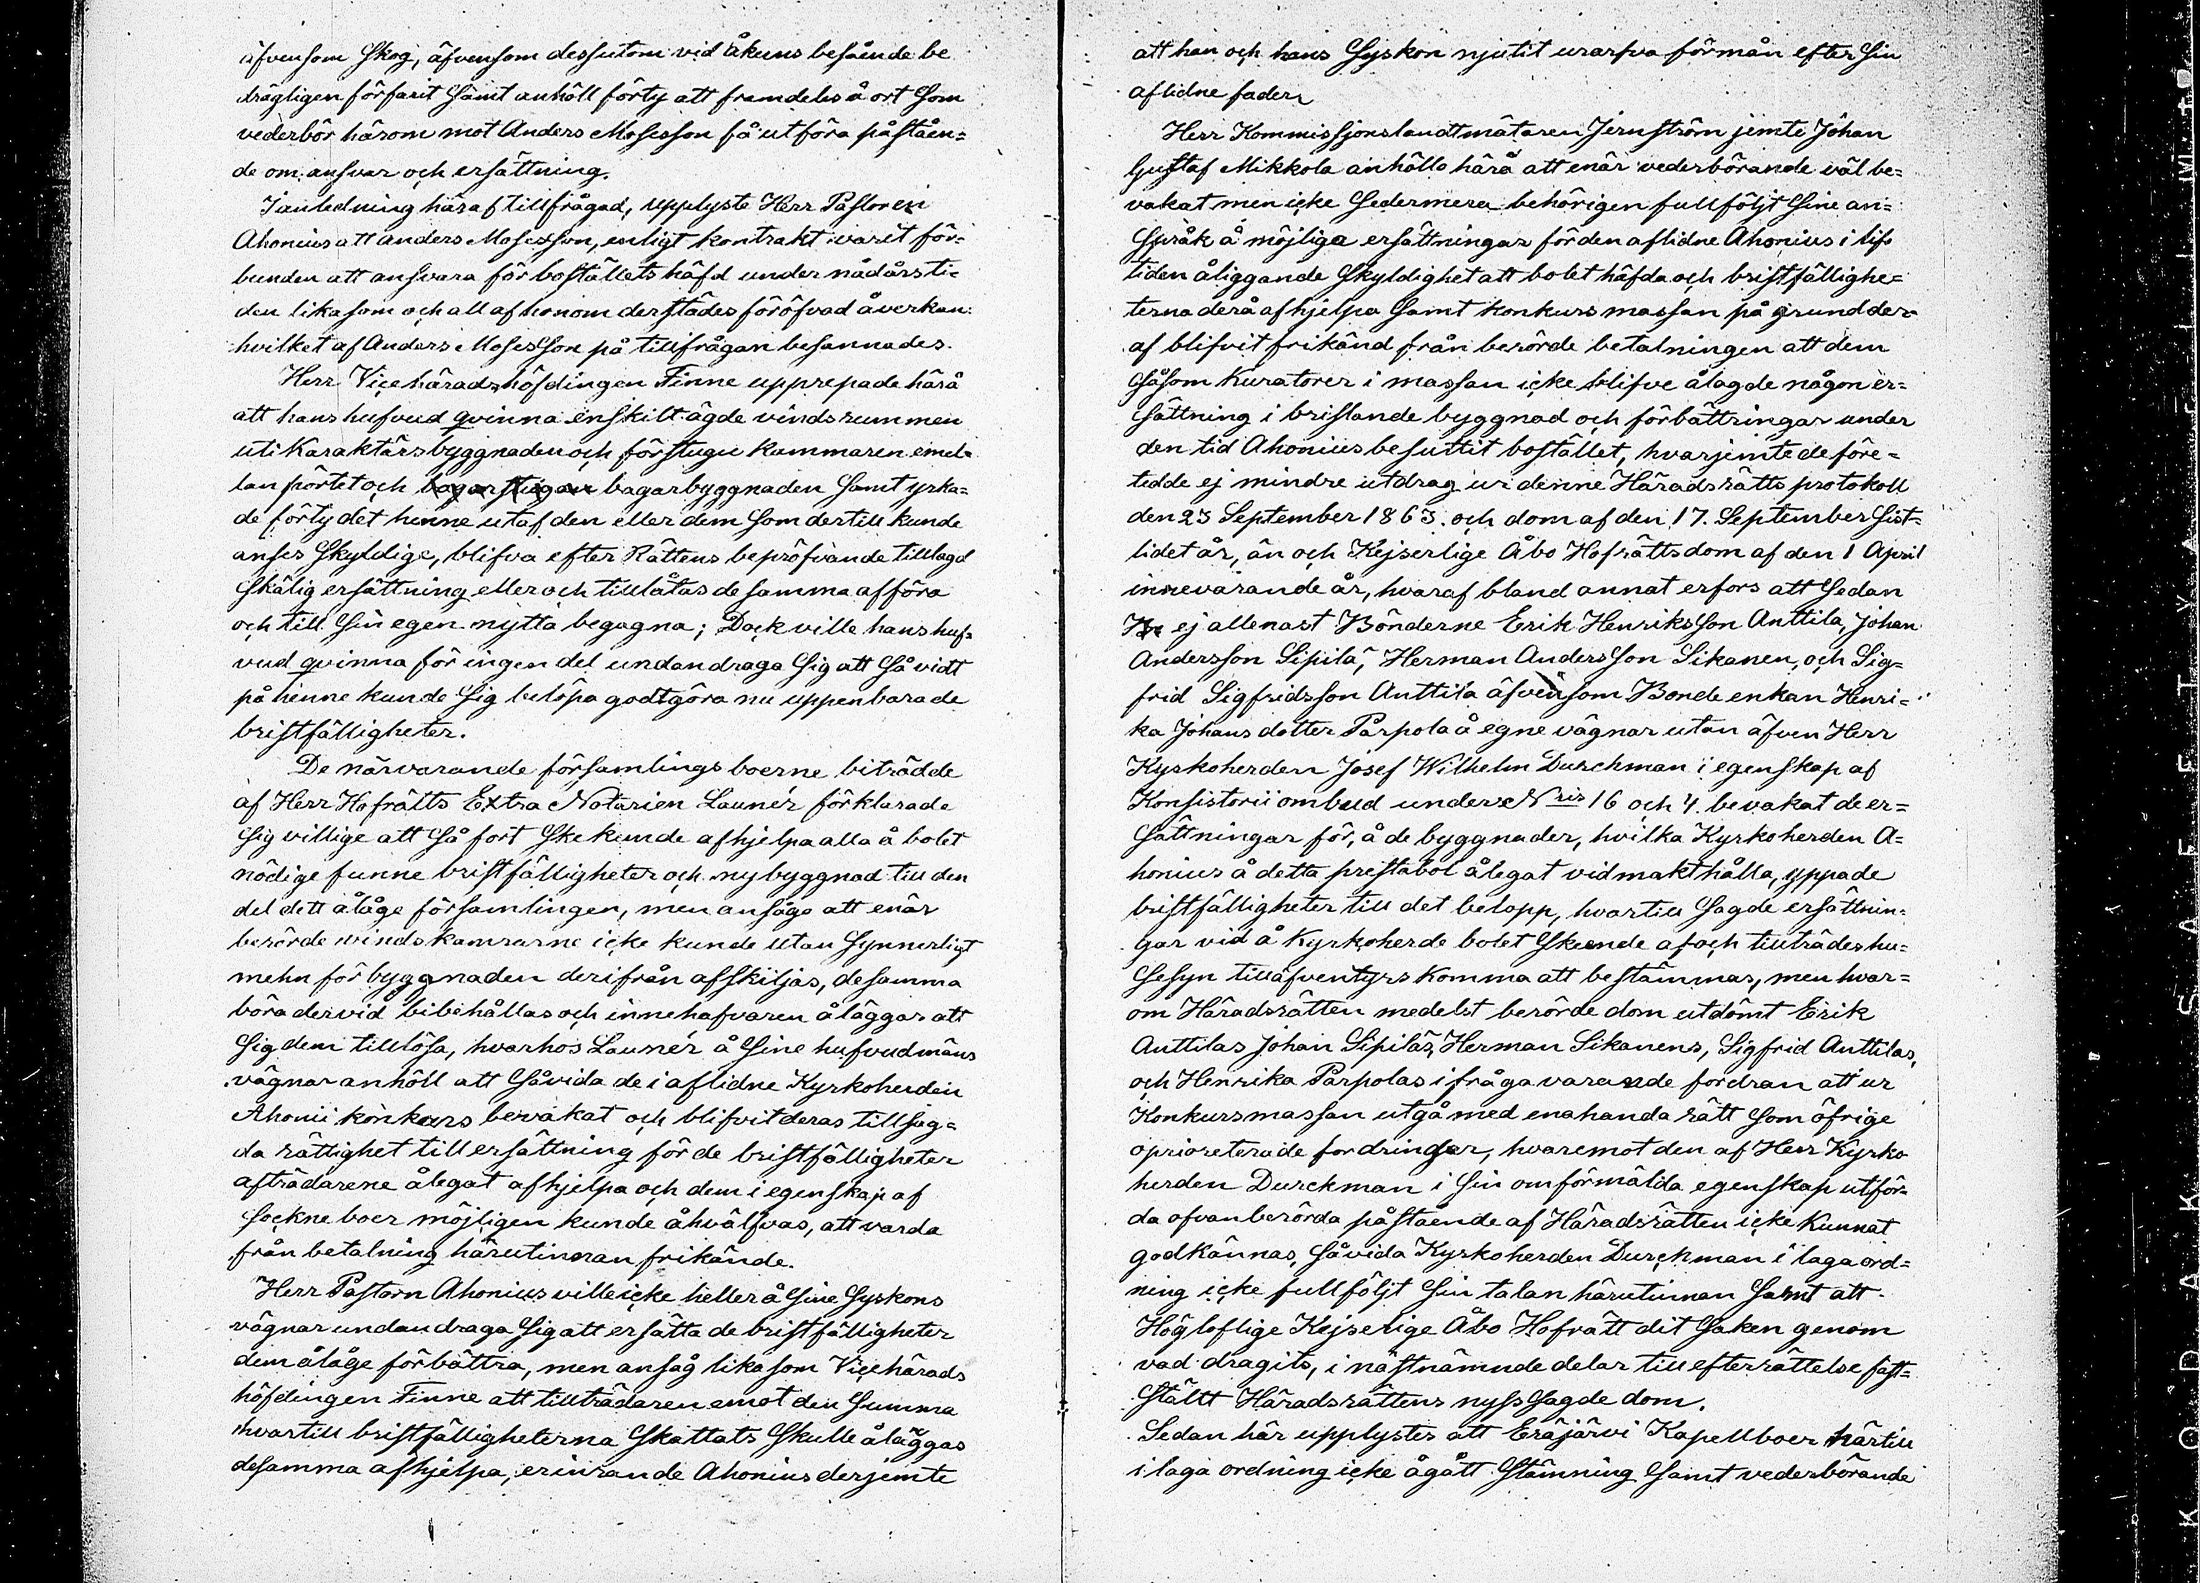 äfvensom Skog, äfvensom dessutom vid åkerns besående be
drägligen förfarit Samt anhöll förty att framdeles å ort Som
vederbör härom mot Anders Mosesson få utföra påståen=
de om ansvar och ersättning.
I anledning häraf tillfrågad, upplyste Herr Pastoren
Ahonius att anders Mosesson, enligt kontrakt varit för=
bunden att ansvara för boställets häfd under nådårsti=
den likasom och all af honom derstädes föröfvad åverkan:
hvilket af Anders Mosesson på tillfrågan besannades.
Herr Vicehäradshöfdingen Finne upprepade härå
att hans hufvud qvinna enskilt ägde vindsrummen
uti Karaktärsbyggnaden och förstugu kammaren emel=
lan pörtet och bagarstugan bagarbyggnaden Samt yrka=
de förty det henne utaf den eller dem Som dertill kunde
anses Skyldige, blifva efter Rättens bepröfvande tillagd
Skälig ersättning eller och tillåtas desamma afföra
och till Sin egen nytta begagna; Dock ville hans huf=
vud qvinna för ingen del undandraga Sig att Så vidt
på henne kunde Sig belöpa godtgöra nu uppenbarade
bristfälligheter.
De närvarande församlingsboerne biträdde
af Herr Hofrätts Extra Notarien Launér förklarade
Sig villige att Så fort Ske kunde afhjelpa alla å bolet
nödige funne bristfälligheter och nybyggnad till den
del dett ålåge församlingen, men ansåge att enär
berörde vindskamrarne icke kunde utan Synnerligt
mehn för byggnaden derifrån afskiljas, desamma
böra dervid bibehållas och innehafvaren åläggas att
Sig dem tilllösa, hvarhos Launér å Sine hufvudmäns
vägnar anhöll att Såvida de i aflidne Kyrkoherden
Ahonii konkurs bevakat och blifvit deras tillsag=
da rättighet till ersättning för de bristfälligheter
afträdarene ålegat afhjelpa och dem i egenskap af
Sockneboer möjligen kunde åhvälfvas, att varda
från betalning härutinnan frikände.
Herr Pastorn Ahonius ville icke heller å Sine Syskons
vägnar undandraga Sig att ersätta de bristfälligheter
dem ålåge förbättra, men ansåg likasom Vicehärads
höfdingen Finne att tillträdaren emot den Summa
hvartill bristfälligheterna Skattats Skulle åläggas
desamma afhjelpa, erinrande Ahonius derjemte
att han och hans Syskon njutit urarfva förmån efter Sin
aflidne fader
Herr Kommissjonslandtmätaren Jernström jemte Johan
Gustaf Mikkola anhöllo härå att enär vederbörande väl be=
vakat men icke Sedermera behörigen fullföljt Sine an=
Språk å möjliga ersättningar för den aflidne Ahonius i lifs
tiden åliggande Skyldighet att bolet häfda och bristfällighe=
terna derå afhjelpa Samt konkurs massan på grund der=
af blifvit frikänd från berörde betalningen att dem
Såsom Kuratorer i massan icke blifve ålagde någon er=
Sättning i bristande byggnad och förbättringar under
den tid Ahonius besuttit bostället, hvarjemte de före=
tedde ej mindre utdrag ur denne Häradsrätts protokoll
den 23 September 1863. och dom af den 17. September Sist=
lidet år, än och Kejserlige Åbo Hofrätts dom af den 1 April
innevarande år, hvaraf bland annat erfors att Sedan
ej allenast Bönderne Erik Henriksson Anttila, Johan
Andersson Sipilä, Herman Andersson Sikanen, och Sig=
frid Sigfridsson Anttila äfvensom Bonde enkan Henri=
ka Johansdotter Parpola å egne vägnar utan äfven Herr
Kyrkoherden Josef Wilhelm Durchman i egenskap af
Konsistorii ombud under Nris 16 och 4. bevakat de er=
Sättningar för, å de byggnader, hvilka Kyrkoherden A=
honius å detta prestabol ålegat vidmakthålla, yppade
bristfälligheter till det belopp, hvartill Sagde ersättnin=
gar vid å Kyrkoherde bolet Skeende af och tillträdes hu=
Sesyn tilläfventyrs Komma att bestämmas, men hvar=
om Häradsrätten medelst berörde dom utdömt Erik
Anttilas Johan Sipiläs, Herman Sikanens, Sigfrid Anttilas,
och Henrika Parpolas ifrågavarande fordran att ur
Konkursmassan utgå med enahanda rätt Som öfrige
oprioreterade fordringar, hvaremot den af Herr Kyrko
herden Durckman i Sin omförmälda egenskap utför=
da ofvanberörda påstående af Häradsrätten icke Kunnat
godkännas, Såvida Kyrkoherden Durckman i laga ord=
ning icke fullföljt Sin talan härutinnan Samt att
Högloflige Kejserlige Åbo Hofrätt dit Saken genom
vad dragits, i nästnämnde delar till efterrättelse fast=
Ställt Häradsrättens nyss Sagde dom.
Sedan här upplystes att Eräjärvi Kapellboer härtill
i laga ordning icke ågått Stämning Samt vederbörande